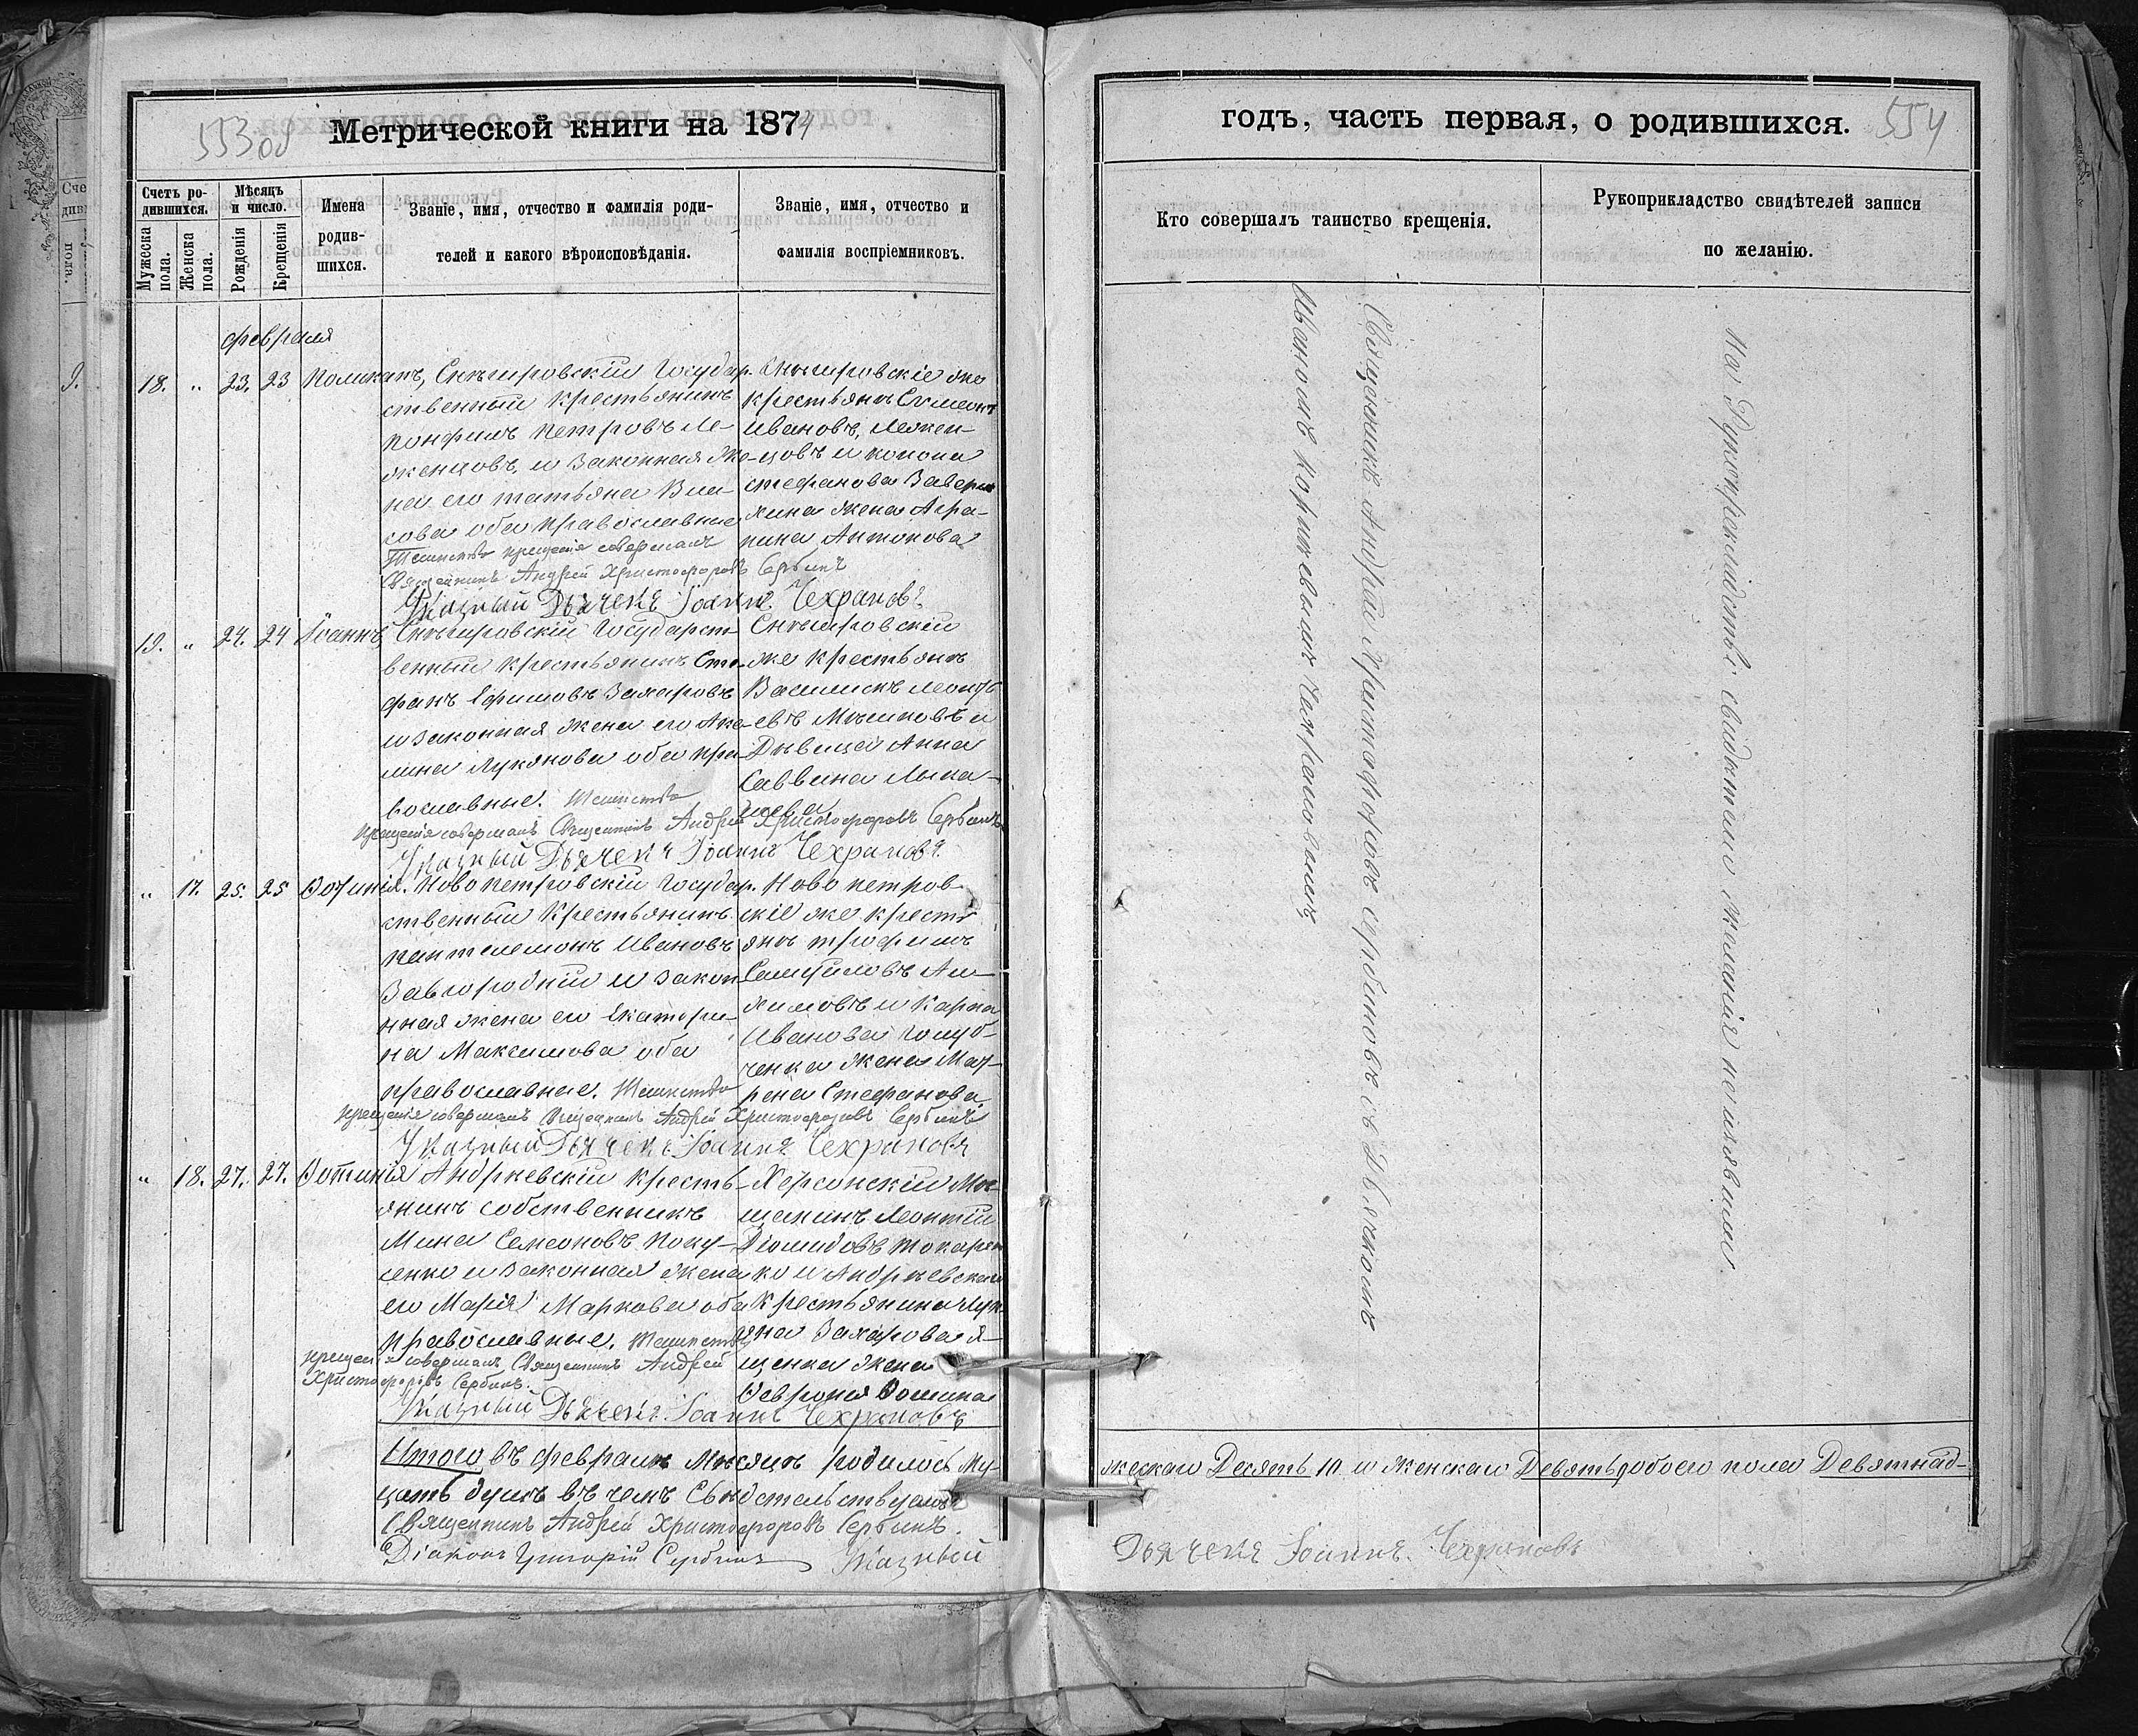 553 об
Метрической книги на 1874
Счетъ родившихся.
Мужеска пола.
Женска пола.
Мѣсяцъ и число.
Рожденія
Крещенія
Имена родив-
шихся.
Званіе, имя, отчество и фамилія роди-
телей и какого вѣроисповѣданія.
Званіе, имя, отчество и
фамилія воспріемниковъ.
февраля
18. " 23. 23 Поликапъ,
Снѣгировскій Государ-
ственный крестьянинъ
Понфилъ Петровъ Ле-
женцовъ, и законная же-
на его Татьяна Вла-
сова оба православные
Таинство крещенія совершалъ
Священникъ Андрей Христофоровъ Сербинъ
Указный Дьячекъ Іоаннъ Чехрановъ
Снѣгировскіе же
крестьяне Симеонъ
Ивановъ, Лежен-
цовъ и
Стефанова
жена Агра-
пина Антонова
19. " 24. 24 Іоаннъ,
Снѣгировскій Государст-
венный крестьянинъ Сте-
фанъ Ефимовъ Захаровъ
и законная жена его Аке-
лина Лукянова оба пра-
вославные. Таинство
крещенія совершалъ Священникъ Андрей Христофоровъ Сербинъ
Указный Дьячекъ Іоаннъ Чехрановъ
Снѣгировскій
же крестьянъ
Василискъ Леонть
евъ и
Дѣвица Анна
Саввина
" 17. 25. 25 Фотинія.
Ново петровскій Государ-
ственный Крестьянинъ
Пантелемонъ Ивановъ
Завгородній и закон-
нная жена его Екатери-
на Максимова оба
православные. Таинство
крещенія совершалъ Священникъ Андрей Христофоровъ Сербинъ
Указный Дьячекъ Іоаннъ Чехрановъ
Ново петров-
скіе же кресть
яне Трофимъ
Самуиловъ Ам-
химовъ и Карпа
Иванова Голуб-
ченка жена Мат-
рена Стефанова
" 18. 27. 27. Фотинія
Андрѣевскій кресть-
янинъ собственникъ
Мина Семеоновъ
и законная жена
его Марія Маркова оба
православные. Таинство
крещенія совершалъ Священникъ Андрей
Христофоровъ Сербинъ.
Указный Дьячекъ Іоаннъ Чехрановъ
Херсонскій Мѣ-
щанинъ Леонтій
Діомидовъ Токарен
ко и Андрѣевскаго
крестьянина Лук-
яна Захарова Я-
щенка жена
Февронія Фомина
Итого въ февралѣ Мѣсяцѣ родилось Му-
жескаго Десять 10 и Женскаго Девять 9 обоего пола Девятнад-
цать душъ въ чемъ Свидѣтельствуемъ
Священникъ Андрей Христофоровъ Сербинъ.
Діаконъ Григорій Сербинъ Указный
Дьячекъ Іоаннъ Чехрановъ
годъ, часть первая, о родившихся.
554
Кто совершалъ таинство крещенія.
Рукоприкладство свидѣтелей записи
по желанію.
Священникъ Андрей Христофоровъ Сербиновъ съ Дьячкомъ
Ивановомъ
На Рукоприкладство свидѣтели желанія не изъявили